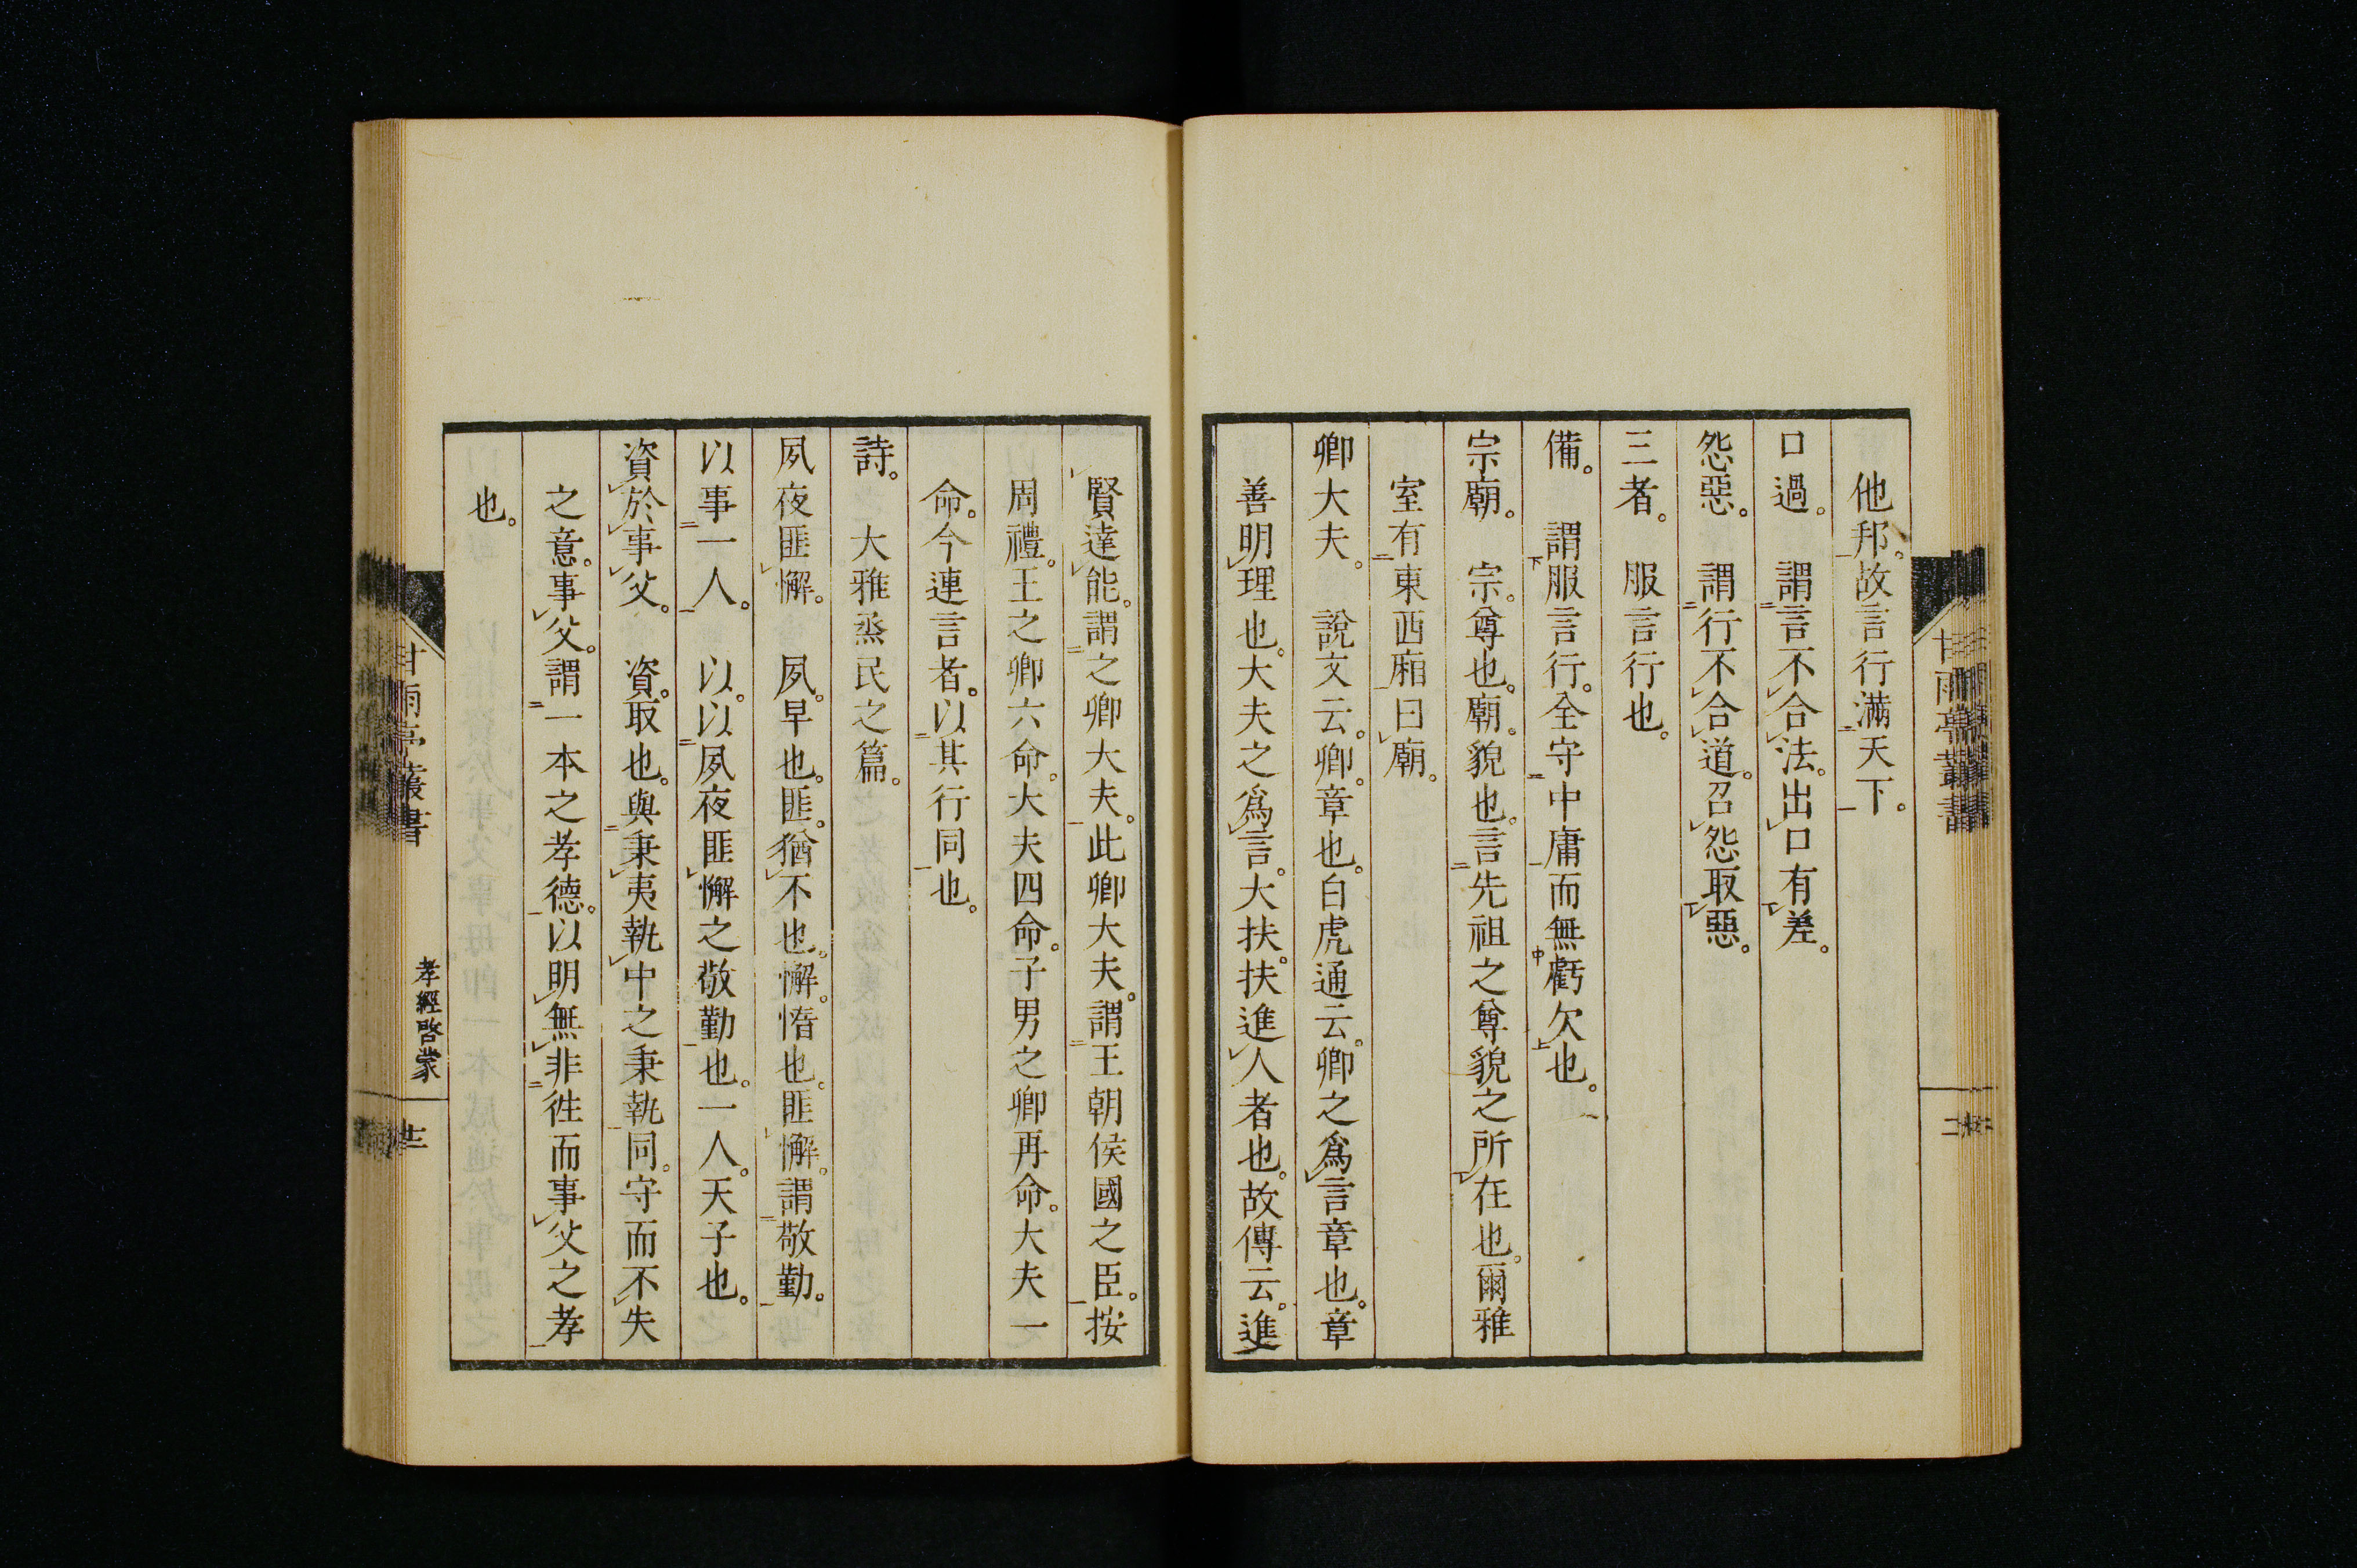 他邦。故言行滿天下。
口過。　謂言不合法。出口有差。
怨惡。　謂行不合道。召怨取惡。
三者。　服言行也。
備。　謂服言行。全守中庸而無虧欠也。
宗廟。　宗。尊也。廟。貌也。言先祖之尊貌之所在也。爾雅
室有東西廂曰廟。
卿大夫。　說文云。卿。章也。白虎通云。卿之爲言章也。章
善明理也。大夫之爲言。大扶。扶進人者也。故傳云。進
賢達能。謂之卿大夫。此卿大夫。謂王朝侯國之臣。按
周禮。王之卿六命。大夫四命。子男之卿再命。大夫一
命。今連言者。以其行同也。
詩。　大雅烝民之篇。
夙夜匪懈。　夙。早也。匪。猶不也。懈。惰也。匪懈。謂敬勤。
以事一人。　以。以夙夜匪懈之敬勤也。一人。天子也。
資於事父。　資。取也。與秉夷執中之秉執同。守而不失
之意。事父。謂一本之孝德。以明無非徃而事父之孝
也。
甘雨亭叢書
孝經啓蒙